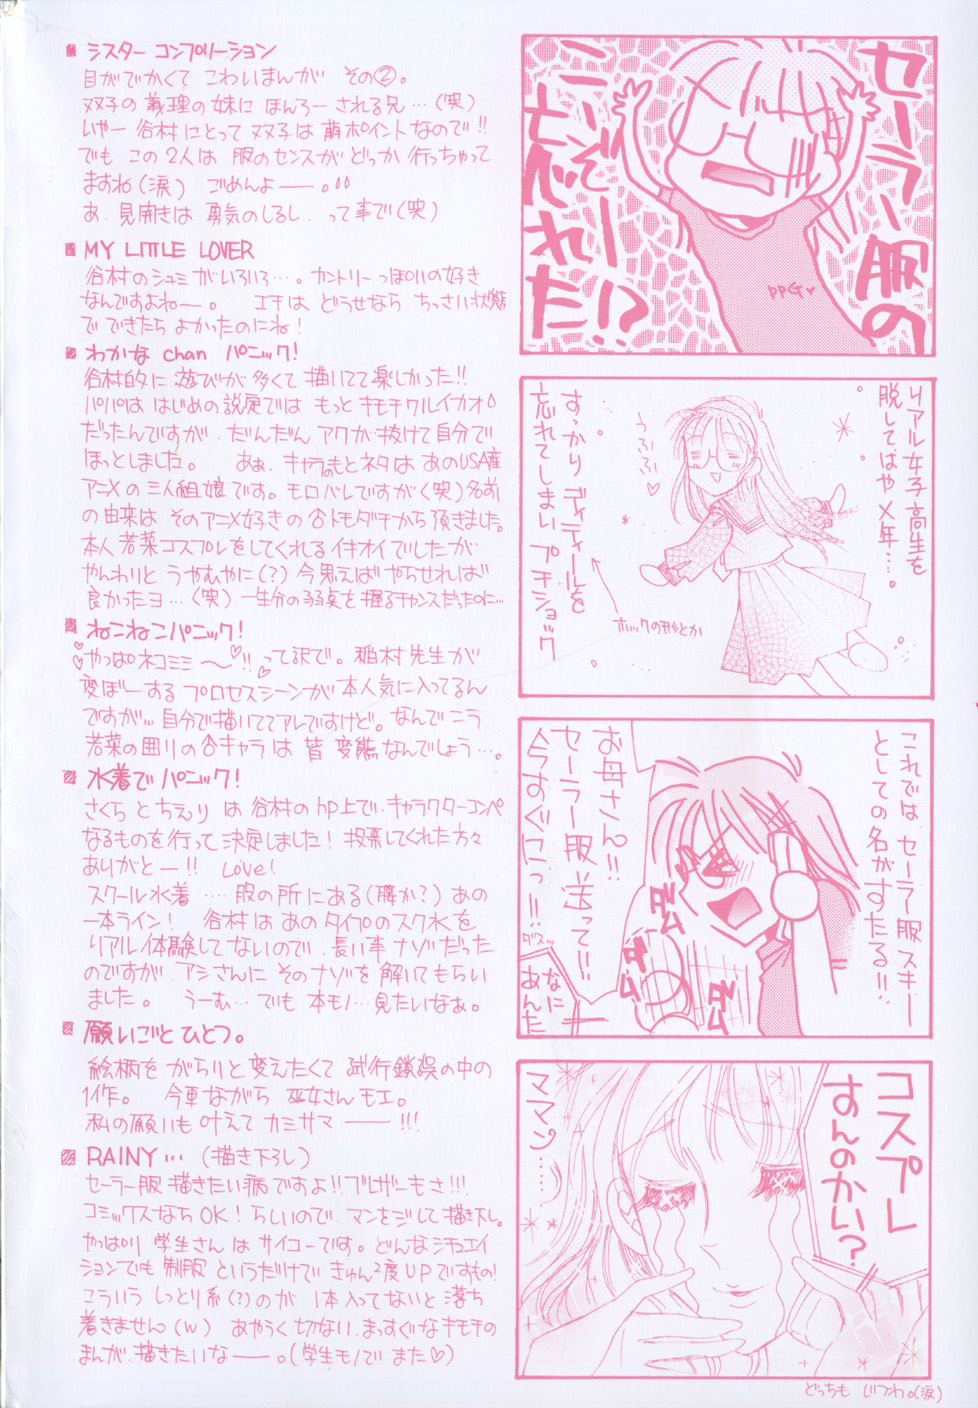 シスター コンプリーション
目がでかくて こわいまんが その②。
双子の義理の妹に ほんろー される兄…(笑)
いやー 谷村にとって 双子は 萌ポイントなので!!
でも この2人は 服のセンスが どっか 行っちゃって
ますね(涙) ごめんよー。
あ、見開きは 勇気のしるし、って事で(笑)
MY LITTLE LOVER
谷村のシュミがいろいろ…。カントリーっぽいの好き
なんですよねー。 エチは どうせなら ちっさい状態
で できたら よかったのにね!
わかな chan パニック!
谷村的に 遊びが 多くて 描いてて楽しかった!!
パパは はじめの設定では もっと キモチワルイカオ
だったんですが、だんだん アクが 抜けて自分で
ほっとしました。 ああ、キャラのもとネタは あのUSA産
アニメの三人組娘です。モロバレですが(笑)名前
の由来は そのアニメ好きの 合トモダチから頂きました。
本人 若菜コスプレをしてくれる イキオイでしたが
やんわりと うやむやに(?) 今思えば やらせれば
良かったヨ…(笑) 一生分の弱点を 握るチャンスだったのに…
ねこねこパニック!
やっぱネコミミ〜!! って訳で。稲村先生が
変ぼーする プロセスシーンが 本人気に入ってるん
ですが、自分で描いててアレですけど。なんでこう
若菜の囲りの 合キャラは 皆 変態なんでしょう…。
水着で パニック!
さくら と ちえり は 谷村の hp上で、キャラクターコンペ
なるものを行って 決定しました! 投票してくれた方々
ありがとー!! Love!
スクール水着 …、股の所にある(腰か?) あの
一本ライン! 谷村は あのタイプのスク水を
リアル体験してないので、長い事 ナゾだった
のですが、アシさんに そのナゾを 解いてもらい
ました。 うーむ…でも 本モノ…見たいなぁ。
願いごと ひとつ。
絵柄を がらりと 変えたくて 試行錯誤の中の
1作。 今更ながら 巫女さんモエ。
私の願いも 叶えて カミサマ ——!!!
RAINY… (描き下ろし)
セーラー服 描きたい病ですよ!! ブレザーもさ!!!
コミックスなら OK! らしいので、マンをじして描き下し。
やはり 学生さん は サイコーです。どんなシチュエイ
ションでも 制服 というだけで きゅん2度UPですもの!
こういう しっとり系(?)のが 1本入ってないと 落ち
着きません(w) あやうく 切ない、まっすぐな キモチの
まんが、描きたいなー。(学生モノで また♡)
セーラー服の
亡ぞーれー
た!?
PPG♡
リアル女子高生を
脱してはや×年…。
うふふふ
すっかり ディティールを
忘れてしまい プチショック
ホックの形とか
これでは セーラー服スキー
としての名が すたる!!
お母さん!!
セーラー服 送って!!
今すぐにっ!!
ダム
ダム
ダム
なに
あんた
コスプレ
すんのかい?
ママン……
どっちも じつわ(涙)